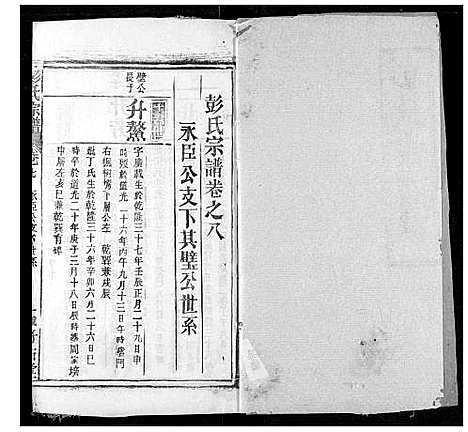 彭氏宗譜卷之八
永臣公支下其璧公世系
璧公長子
升鰲
字廣載生於乾隆三十七年壬辰正月二十九日申
時歿於道光二十六年丙午九月十三日午時葬門
右堀樹塝下層公左乾巽兼戌辰
娶丁氏生於乾隆三十六年辛卯六月二十六日巳
時卒於道光二十年庚子三月十八日辰時葬周家塝
中層左亥巳兼乾巽有碑
彭氏宗譜